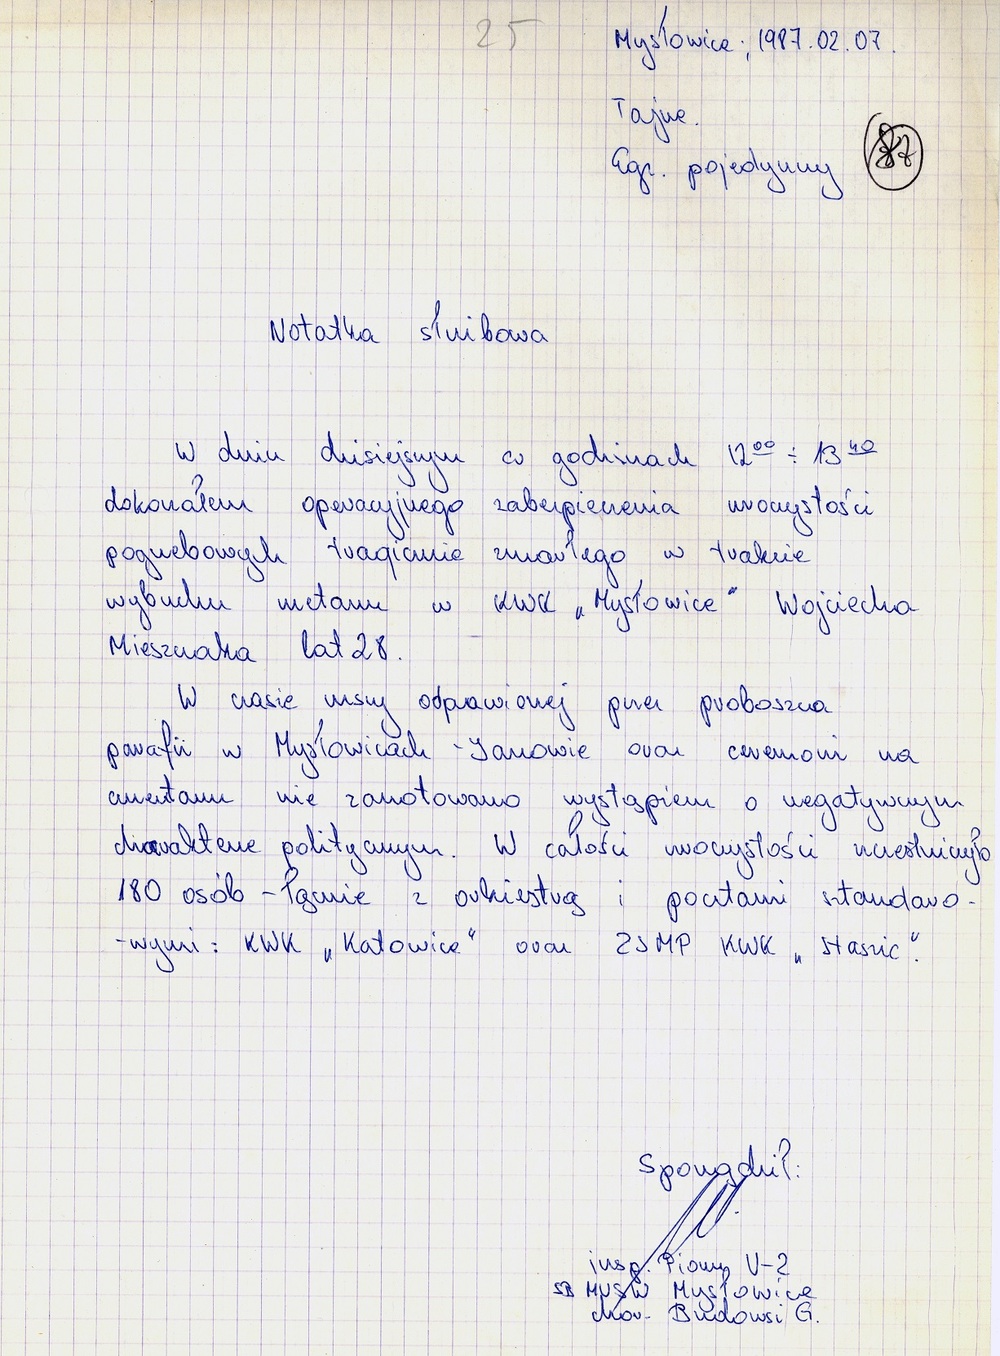 25
Mysłowice; 1987.02.07.
Tajne.
Egz. pojedynczy
87
Notatka służbowa
W dniu dzisiejszym w godzinach 12⁰⁰ ÷ 13⁴⁰
dokonałem operacyjnego zabezpieczenia uroczystości
pogrzebowych tragicznie zmarłego w trakcie
wybuchu metanu w KWK „Mysłowice" Wojciecha
Mieszczaka lat 28.
W czasie mszy odprawionej przez proboszcza
parafii w Mysłowicach - Janowie oraz ceremoni na
cmentarzu nie zanotowano wystąpień o negatywnym
charakterze politycznym. W całości uroczystości uczestniczyło
180 osób - łącznie z orkiestrą i pocztami sztandaro-
-wymi: KWK „Katowice" oraz ZSMP KWK „Staszic".
Sporządził:
insp. Pionu V-2
SB MUSW Mysłowice
chor. Budowsi G.